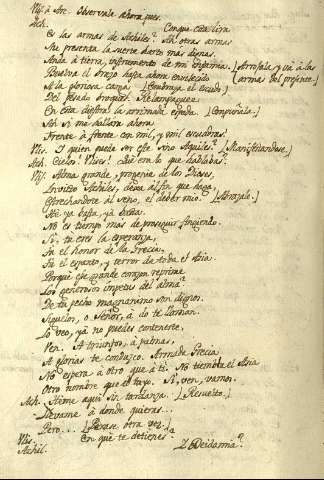 Ulis. à Arc. Observale ahora pues.
Ach. Conque esta lira
Es las armas de Achiles? Ah otras armas
Me presenta la suerte harto mas dignas.
Anda à tierra, instrumento de mi infamia. [Arrojala y và à las
Buelva el brazo hasta ahora envilecido [armas del presente.]
A la gloriosa carga [Embraza el Escudo]
Del pesado broquèl. Relampaguea
En esta diestra la arrimada espada. [Empuñala.]
Ah si me hallara ahora
Frente à frente con mil, y mil escuadras!
Ulis. I quien puede ser este sino Aquiles? [Manifestandose.]
Ach. Cielos! Ulises! Què era lo que hablabas?
Ulis. Alma grande, progenie de los Dioses,
Invicto Achiles, dexa al fin que haga
Estrechandote al seno, el deber mio. [Abrazale.]
He ya basta, ya basta.
No es tiempo mas de proseguir fingiendo.
Si, tu eres la esperanza,
Tu el honor de la Grecia,
Tu el espanto, y terror de toda el Asia.
Porquè ese grande corazon reprime
Los generosos impetus del alma?
De tu pecho magnanimo son dignos.
Siguelos, o Señor, à do te llaman.
Lo veo, ya no puedes contenerte.
Ven. A triunfos, à palmas,
A glorias te conduzco. Armada Grecia
No espera à otro que à ti. No tiembla el Asia
Otro nombre que el tuyo. Si, ven, vamos.
Ach. Heme aqui sin tardanza. [Resuelto.]
Llevame à donde quieras...
Pero... [Parase otra vez.]
Ulis. En que te detienes?
Achil. I Deidamia?